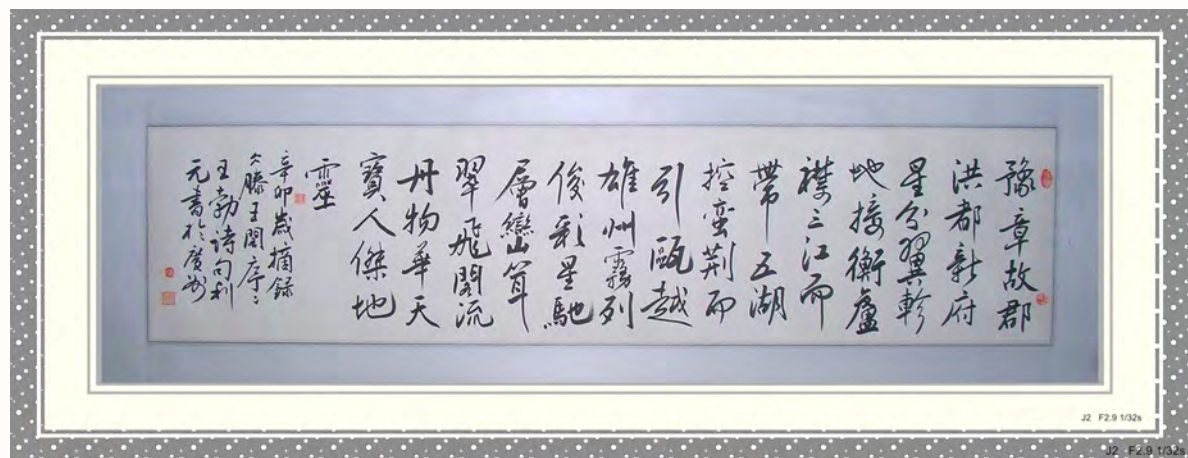 豫章故郡
洪都新府
星分翼軫
地接衡廬
襟三江而
帶五湖
控蛮荆而
引甌越
雄州霧列
俊彩星馳
層巒聳
翠飛閣流
丹物華天
寶人傑地
靈
辛卯歲摘録
滕王閣序
王勃詩句利
元書於廣州
J2 F2.9 1/32s
J2 F2.9 1/32s